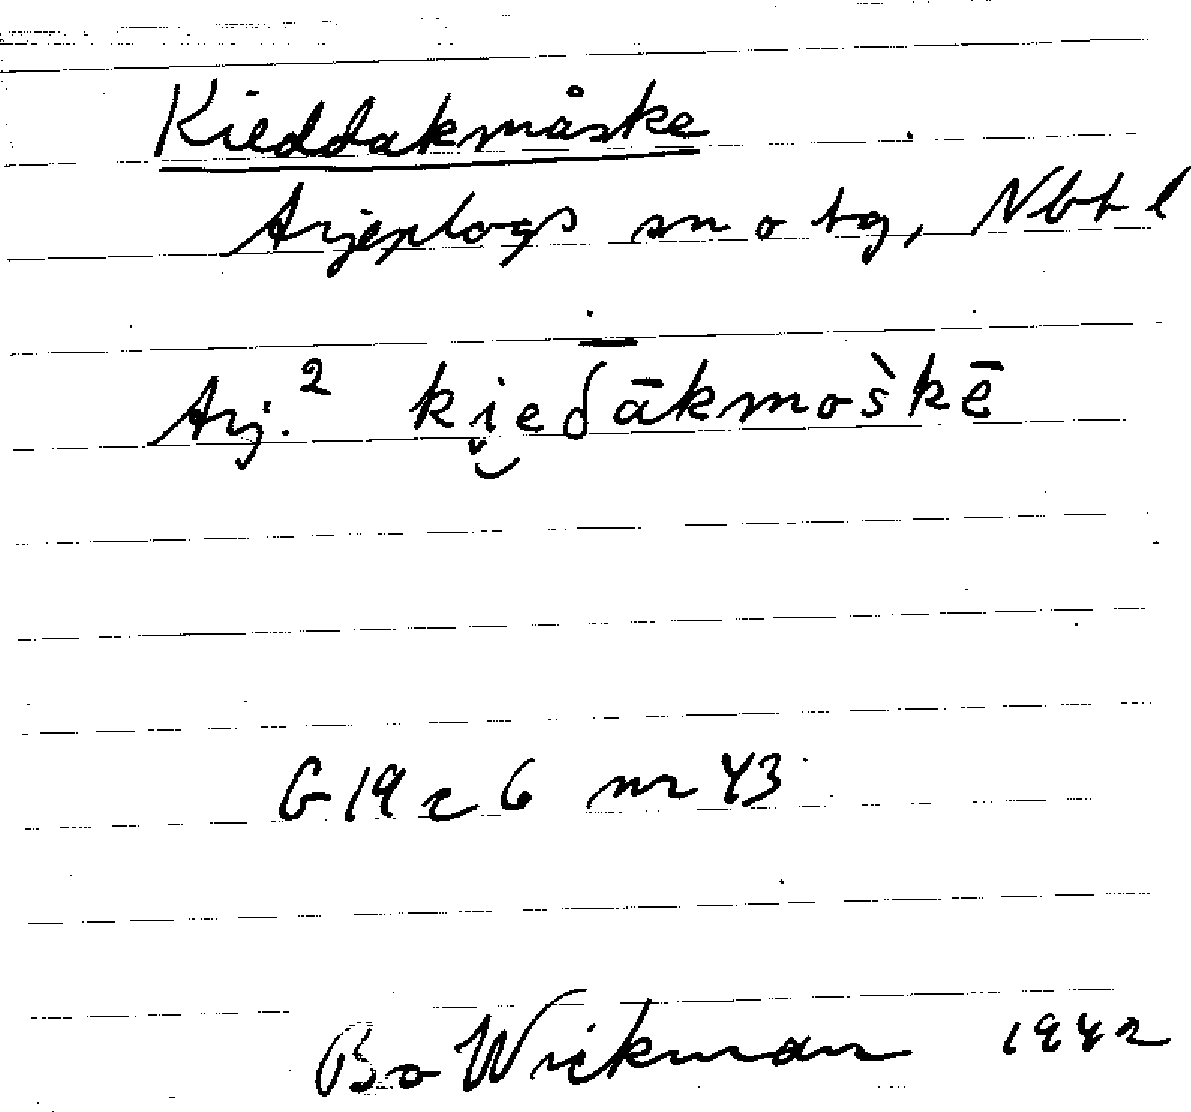 Kieddakmåske
Arjeplogs sn o tg, Nbt l
Arj.² ki̮eδ̄ākmoš̀kē
G 19 c 6 nr 43
Bo Wickman 1942